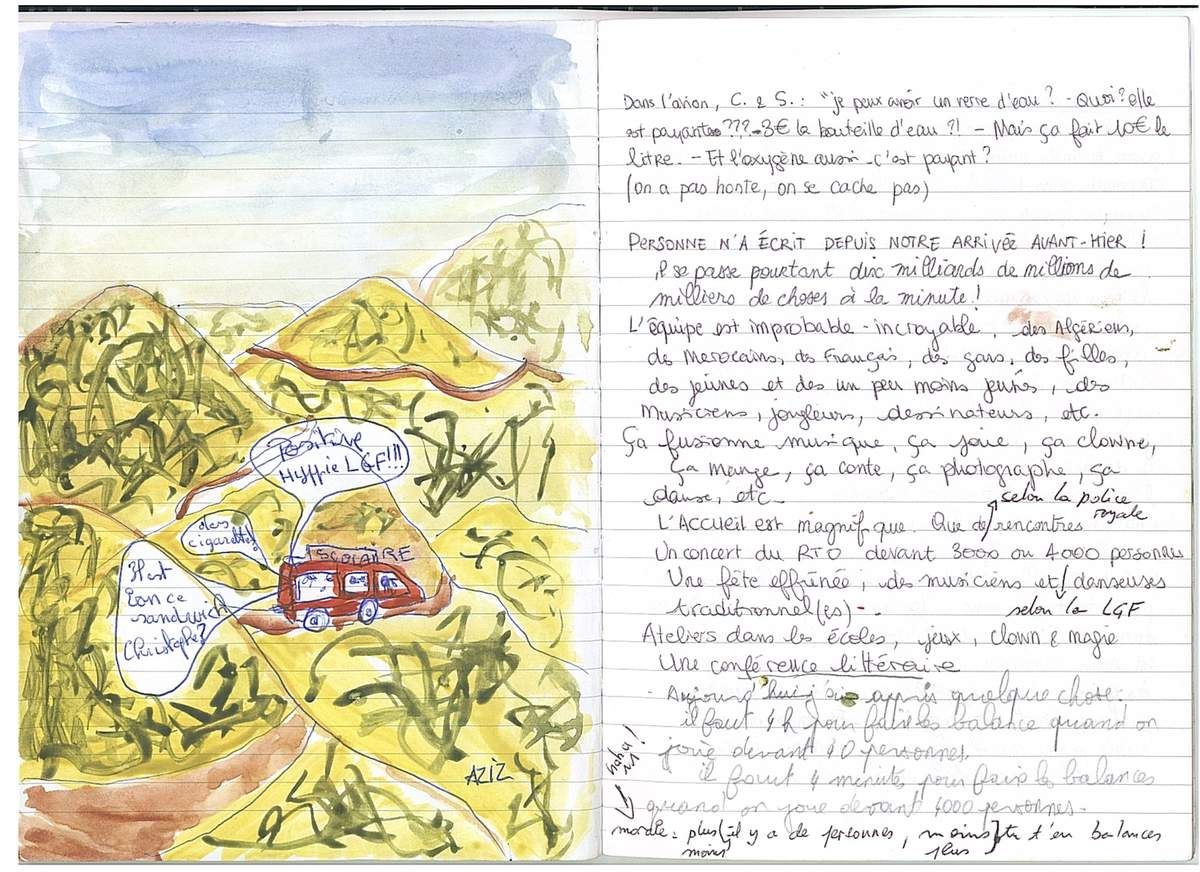 Positive
Hyppie LGF!!!
des
cigarettes!
SCOLAIRE
est
ton
sandwich
Christophe?
AZIZ
Dans l'avion, C. & S. : "je peux avoir un verre d'eau ? - Quoi? elle
est payante ??? - 3€ la bouteille d'eau ?! - Mais ça fait 10€ le
litre. - Et l'oxygène aussi c'est payant ?
(on a pas honte, on se cache pas)
PERSONNE N'A ÉCRIT DEPUIS NOTRE ARRIVÉE AVANT-HIER !
il se passe pourtant dix milliards de millions de
milliers de choses à la minute !
L'équipe est improbable - incroyable, des Algériens,
des Marocains, des Français, des gars, des filles,
des jeunes et des un peu moins jeunes, des
musiciens, jongleurs, dessinateurs, etc.
Ça fusionne musique, ça joue, ça clowne,
ça mange, ça conte, ça photographe, ça
danse, etc.
selon la police
royale
L'Accueil est magnifique. Que de rencontres
Un concert du RTO devant 3000 ou 4000 personnes
Une fête effrénée, des musiciens et danseuses
traditionnel(es) -
selon la LGF
Ateliers dans les écoles, jeux, clown & magie
Une conférence littéraire
- Aujourd'hui j'ai appris quelque chose :
il faut 4h pour faire les balance quand on
joue devant 40 personnes.
il faut 4 minutes pour faire les balances
quand on joue devant 4000 personnes.
haha !
morale : plus il y a de personnes, moins tu t'en balances
moins plus